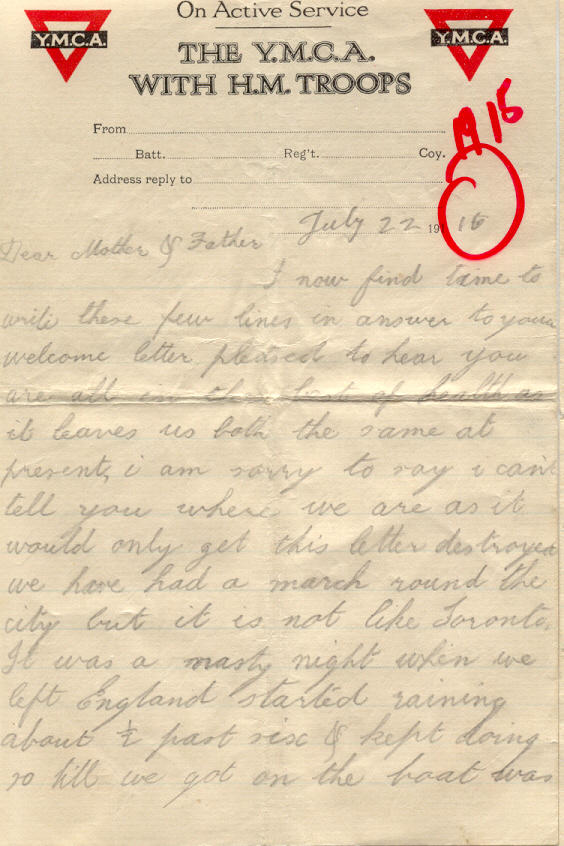 On Active Service
Y.M.C.A. Y.M.C.A.
THE Y.M.C.A.
WITH H.M. TROOPS
1915
From
Batt. Reg't. Coy.
Address reply to
July 22 1916
Dear Mother & Father
I now find time to
write these few lines in answer to your
welcome letter pleased to hear you
are all in the best of health as
it leaves us both the same at
present, i am sorry to say i can't
tell you where we are as it
would only get this letter destroyed
we have had a march round the
city but it is not like Toronto.
It was a nasty night when we
left England started raining
about ½ past six & kept doing
so till we got on the boat was